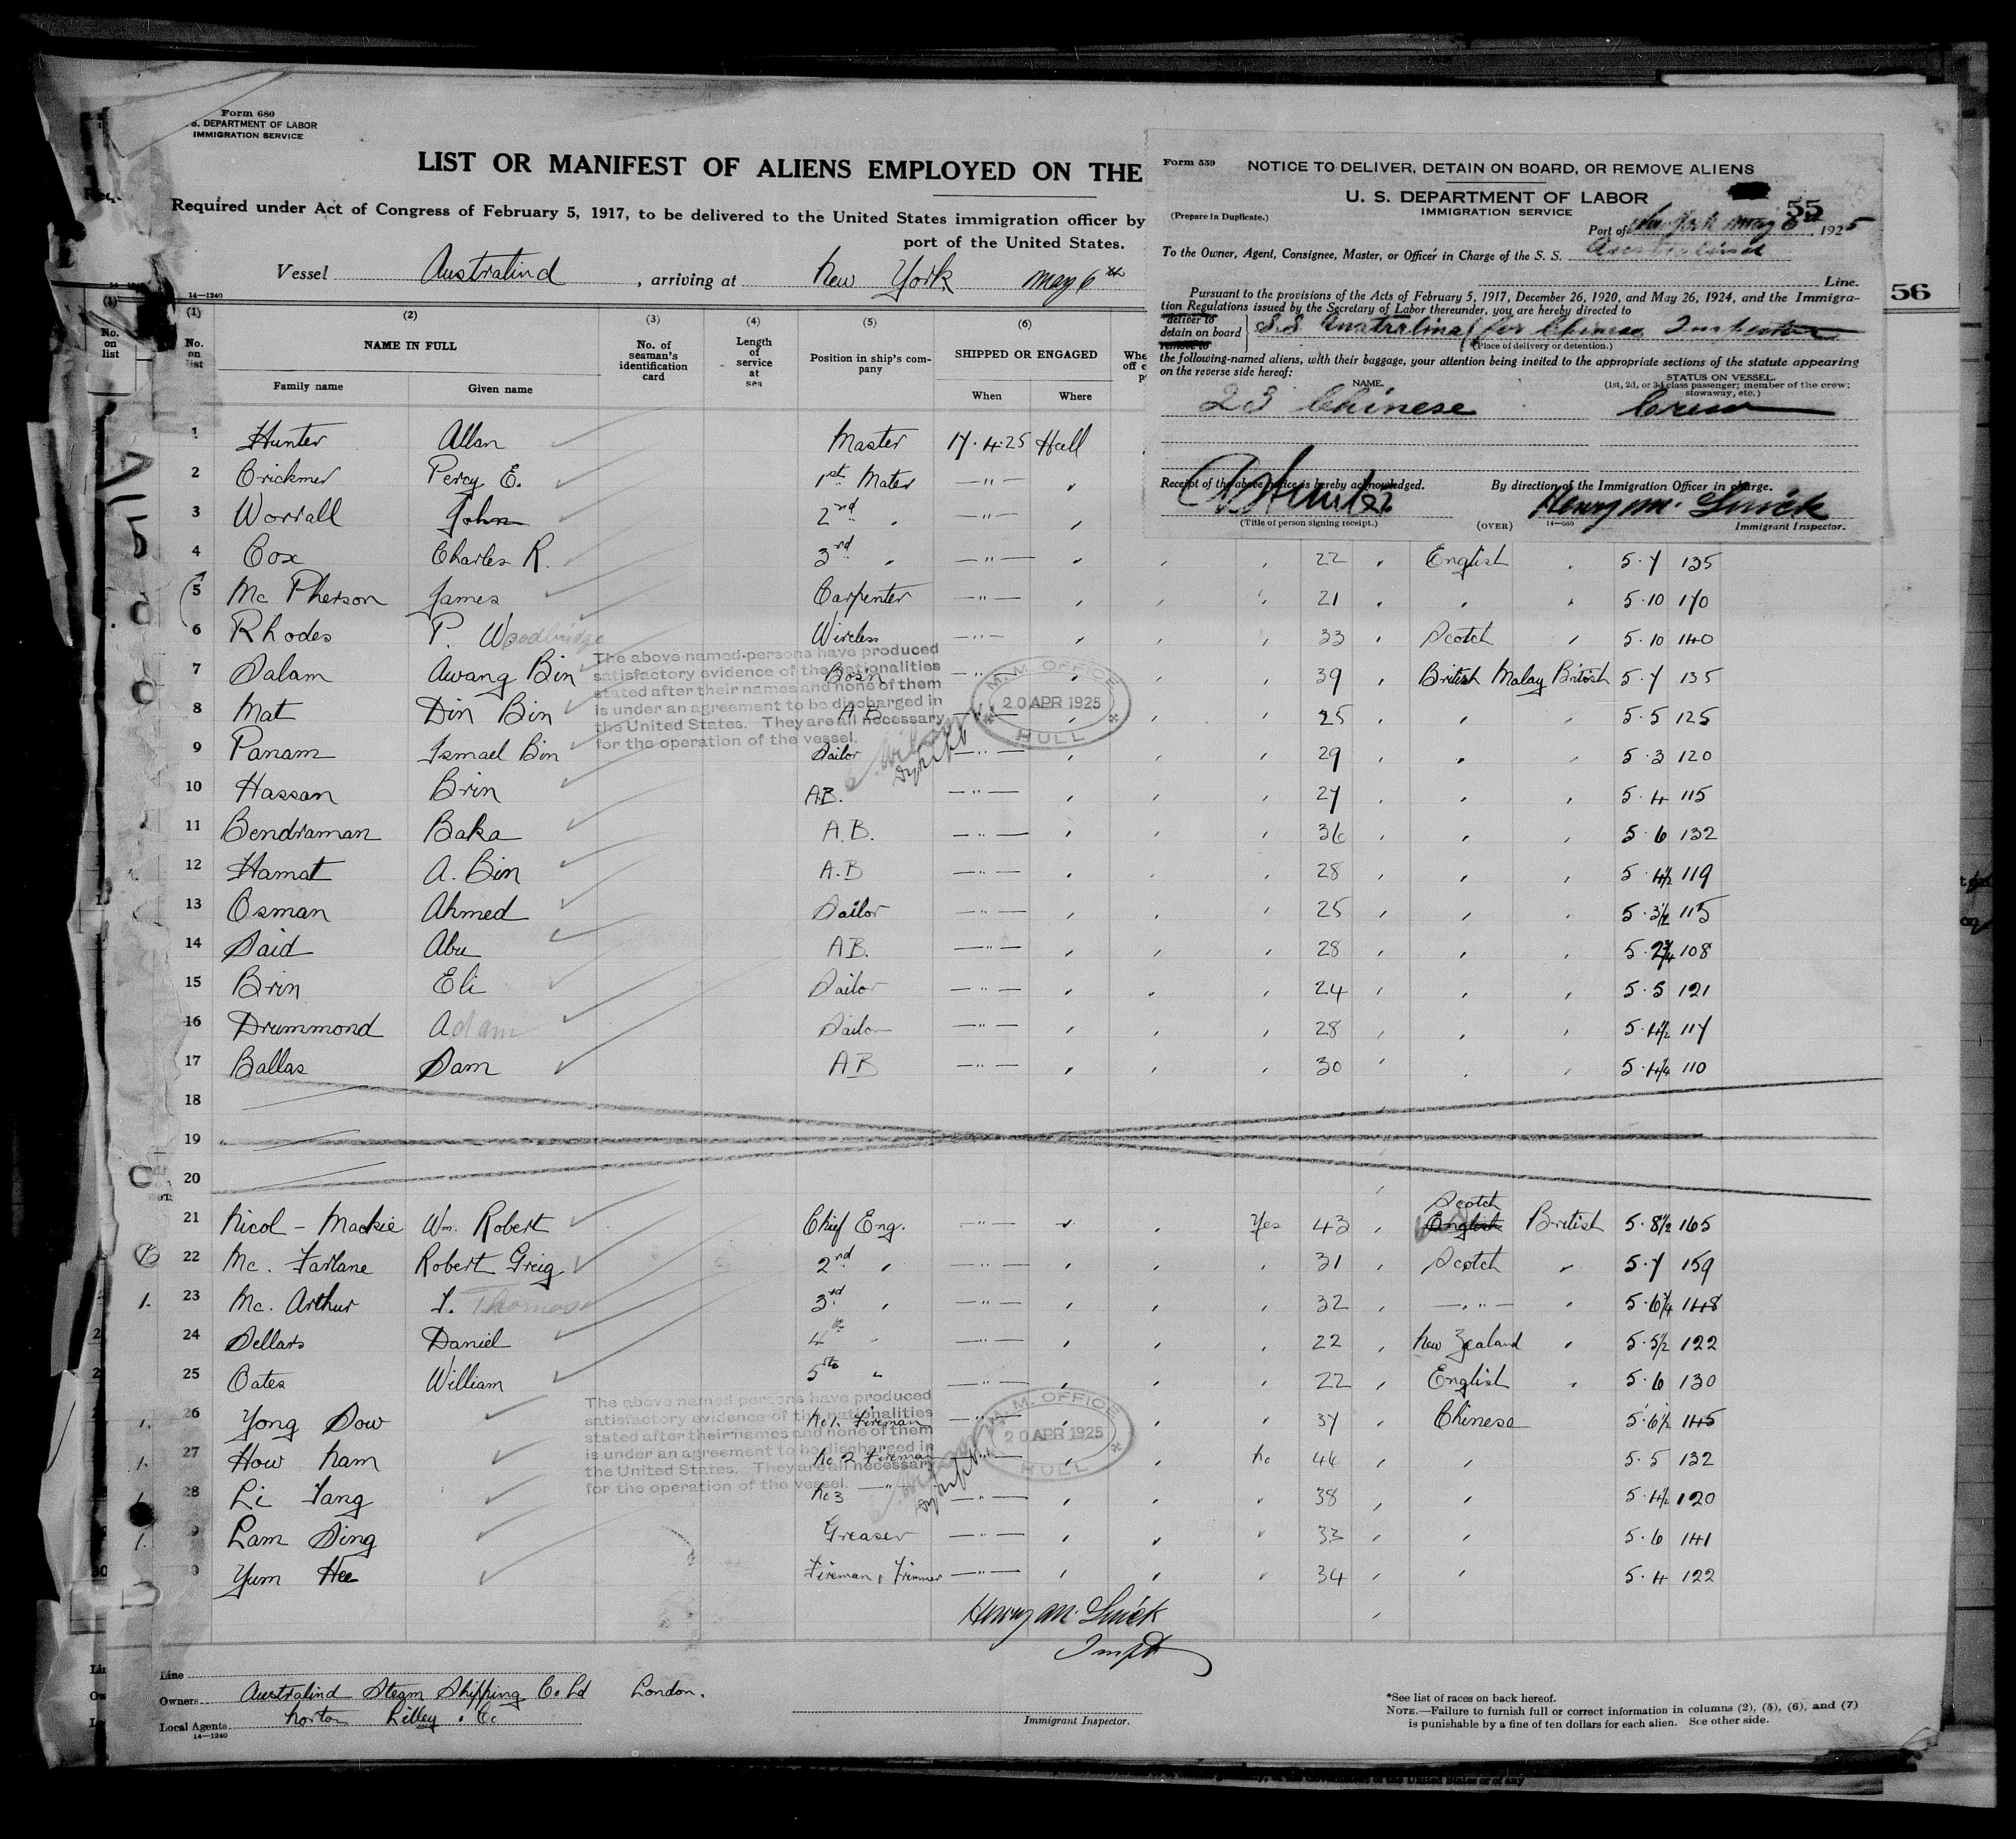 Form 680
S. DEPARTMENT OF LABOR
IMMIGRATION SERVICE
LIST OR MANIFEST OF ALIENS EMPLOYED ON THE
Required under Act of Congress of February 5, 1917, to be delivered to the United States immigration officer by
port of the United States.
Vessel Australind, arriving at New York May 6th
14—1240
Form 559
NOTICE TO DELIVER, DETAIN ON BOARD, OR REMOVE ALIENS
U. S. DEPARTMENT OF LABOR
IMMIGRATION SERVICE
55
(Prepare in Duplicate.)
Port of New York May 6, 1925
To the Owner, Agent, Consignee, Master, or Officer in Charge of the S. S. Australind
Line.
56
Pursuant to the provisions of the Acts of February 5, 1917, December 26, 1920, and May 26, 1924, and the Immigra-
tion Regulations issued by the Secretary of Labor thereunder, you are hereby directed to
deliver to
detain on board
remove to
S.S. Australind (for Chinese Inspector
(Place of delivery or detention.)
the following-named aliens, with their baggage, your attention being invited to the appropriate sections of the statute appearing
on the reverse side hereof:
NAME.
STATUS ON VESSEL.
(1st, 2d, or 3d class passenger; member of the crew;
stowaway, etc.)
23 Chinese Crew
Receipt of the above notice is hereby acknowledged.
By direction of the Immigration Officer in charge.
A Hunter
Henry M.
(Title of person signing receipt.)
(OVER)
14—680
Immigrant Inspector.
(1) (2) (3) (4) (5) (6)
No. on list
NAME IN FULL
Family name Given name
No. of seaman's identification card
Length of service at sea
Position in ship's company
SHIPPED OR ENGAGED
When Where
1 Hunter Allan Master 17.4.25 Hull
2 Crickmer Percy E. 1st Mate —"— "
3 Worrall John 2nd " —"— "
4 Cox Charles R. 3rd " —"— " " " 22 " English " 5.7 135
5 Mc Pherson James Carpenter —"— " " " 21 " " " 5.10 170
6 Rhodes P. Woodbridge Wireless —"— " " " 33 " Scotch " 5.10 140
7 Salam Awang Bin Bosn —"— " " " 39 " British Malay British 5.7 135
8 Mat Din Bin A.B. —"— " " " 25 " " " 5.5 125
9 Panam Ismael Bin Sailor —"— " " " 29 " " " 5.3 120
10 Hassan Brin A.B. —"— " " " 27 " " " 5.4 115
11 Bendraman Baka A.B. —"— " " " 36 " " " 5.6 132
12 Hamat A. Bin A.B —"— " " " 28 " " " 5.4½ 119
13 Osman Ahmed Sailor —"— " " " 25 " " " 5.3½ 115
14 Said Abu A.B. —"— " " " 28 " " " 5.2¾ 108
15 Brin Eli Sailor —"— " " " 24 " " " 5.5 121
16 Drummond Adam Sailor —"— " " " 28 " " " 5.4½ 117
17 Ballas Sam AB —"— " " " 30 " " " 5.4¼ 110
18
19
20
21 Nicol - Mackie Wm. Robert Chief Eng. —"— " " Yes 43 " English Scotch British 5.8½ 165
22 Mc. Farlane Robert Greig 2nd " —"— " " " 31 " Scotch " 5.7 159
23 Mc. Arthur T. Thomas 3rd " —"— " " " 32 " —"— " 5.6¾ 148
24 Sellars Daniel 4th " —"— " " " 22 " New Zealand " 5.5½ 122
25 Oates William 5th " —"— " " " 22 " English " 5.6 130
26 Yong Sow No 1. Fireman —"— " " " 37 " Chinese 5.6½ 145
27 How Nam No 2 Fireman —"— " " No 44 " " 5.5 132
28 Li Fang No 3 —"— —"— " " " 38 " " 5.4½ 120
Lam Sing Greaser —"— " " " 33 " " 5.6 141
Yum Hee Fireman & Trimmer —"— " " " 34 " " 5.4 122
The above named persons have produced
satisfactory evidence of the nationalities
stated after their names and none of them
is under an agreement to be discharged in
the United States. They are all necessary
for the operation of the vessel.
M.M. OFFICE
20 APR 1925
HULL
The above named persons have produced
satisfactory evidence of the nationalities
stated after their names and none of them
is under an agreement to be discharged in
the United States. They are all necessary
for the operation of the vessel.
M.M. OFFICE
20 APR 1925
HULL
Henry M.
Inspt
Line
Owners Australind Steam Shipping Co. Ld London.
Local Agents Norton Lilley & Co
14—1240
Immigrant Inspector.
*See list of races on back hereof.
NOTE.—Failure to furnish full or correct information in columns (2), (5), (6), and (7)
is punishable by a fine of ten dollars for each alien. See other side.